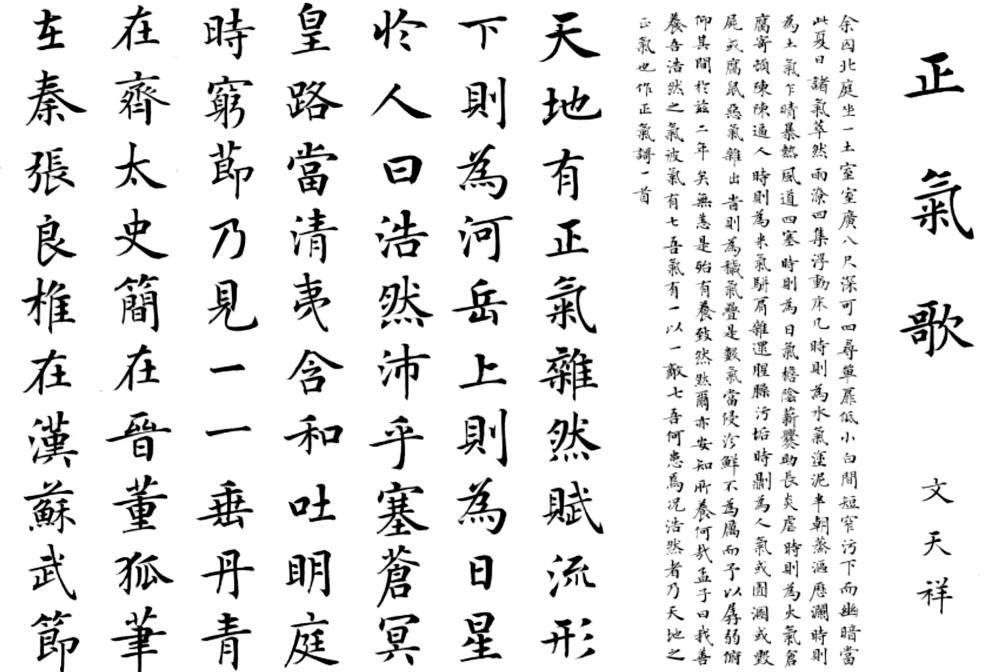 正氣歌
文天祥
余囚北庭坐一土室室廣八尺深可四尋單扉低小白間短窄污下而幽暗當
此夏日諸氣萃然雨潦四集浮動床几時則為水氣塗泥半朝蒸漚歷瀾時則
為土氣乍晴暴熱風道四塞時則為日氣檐陰薪爨助長炎虐時則為火氣倉
腐寄頓陳陳逼人時則為米氣駢肩雜遝腥臊污垢時則為人氣或圊溷或毀
屍或腐鼠惡氣雜出旹則為穢氣疊是數氣當侵沴鮮不為厲而予以孱弱俯
仰其間於茲二年矣無恙是殆有養致然然爾亦安知所養何哉孟子曰我善
養吾浩然之氣彼氣有七吾氣有一以一敵七吾何患焉況浩然者乃天地之
正氣也作正氣謌一首
天地有正氣雜然賦流形
下則為河岳上則為日星
於人曰浩然沛乎塞蒼冥
皇路當清夷含和吐明庭
時窮節乃見一一垂丹青
在齊太史簡在晉董狐筆
在秦張良椎在漢蘇武節